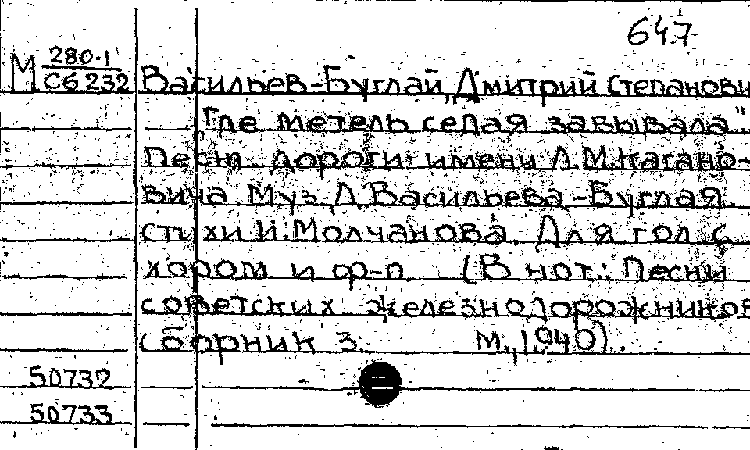 647
М 280-1
С6232 Васильев-Буглай, Дмитрий Степанови
"Где метель седая завывала"
Песня дороги имени Л.М.Кагано-
вича Муз. Д.Васильева-Буглая
стихи И.Молчанова. Для гол. с
хором и ф-п. (В нот.: Песни
советских железнодорожников
сборник 3. М., 1940).
50732
50733